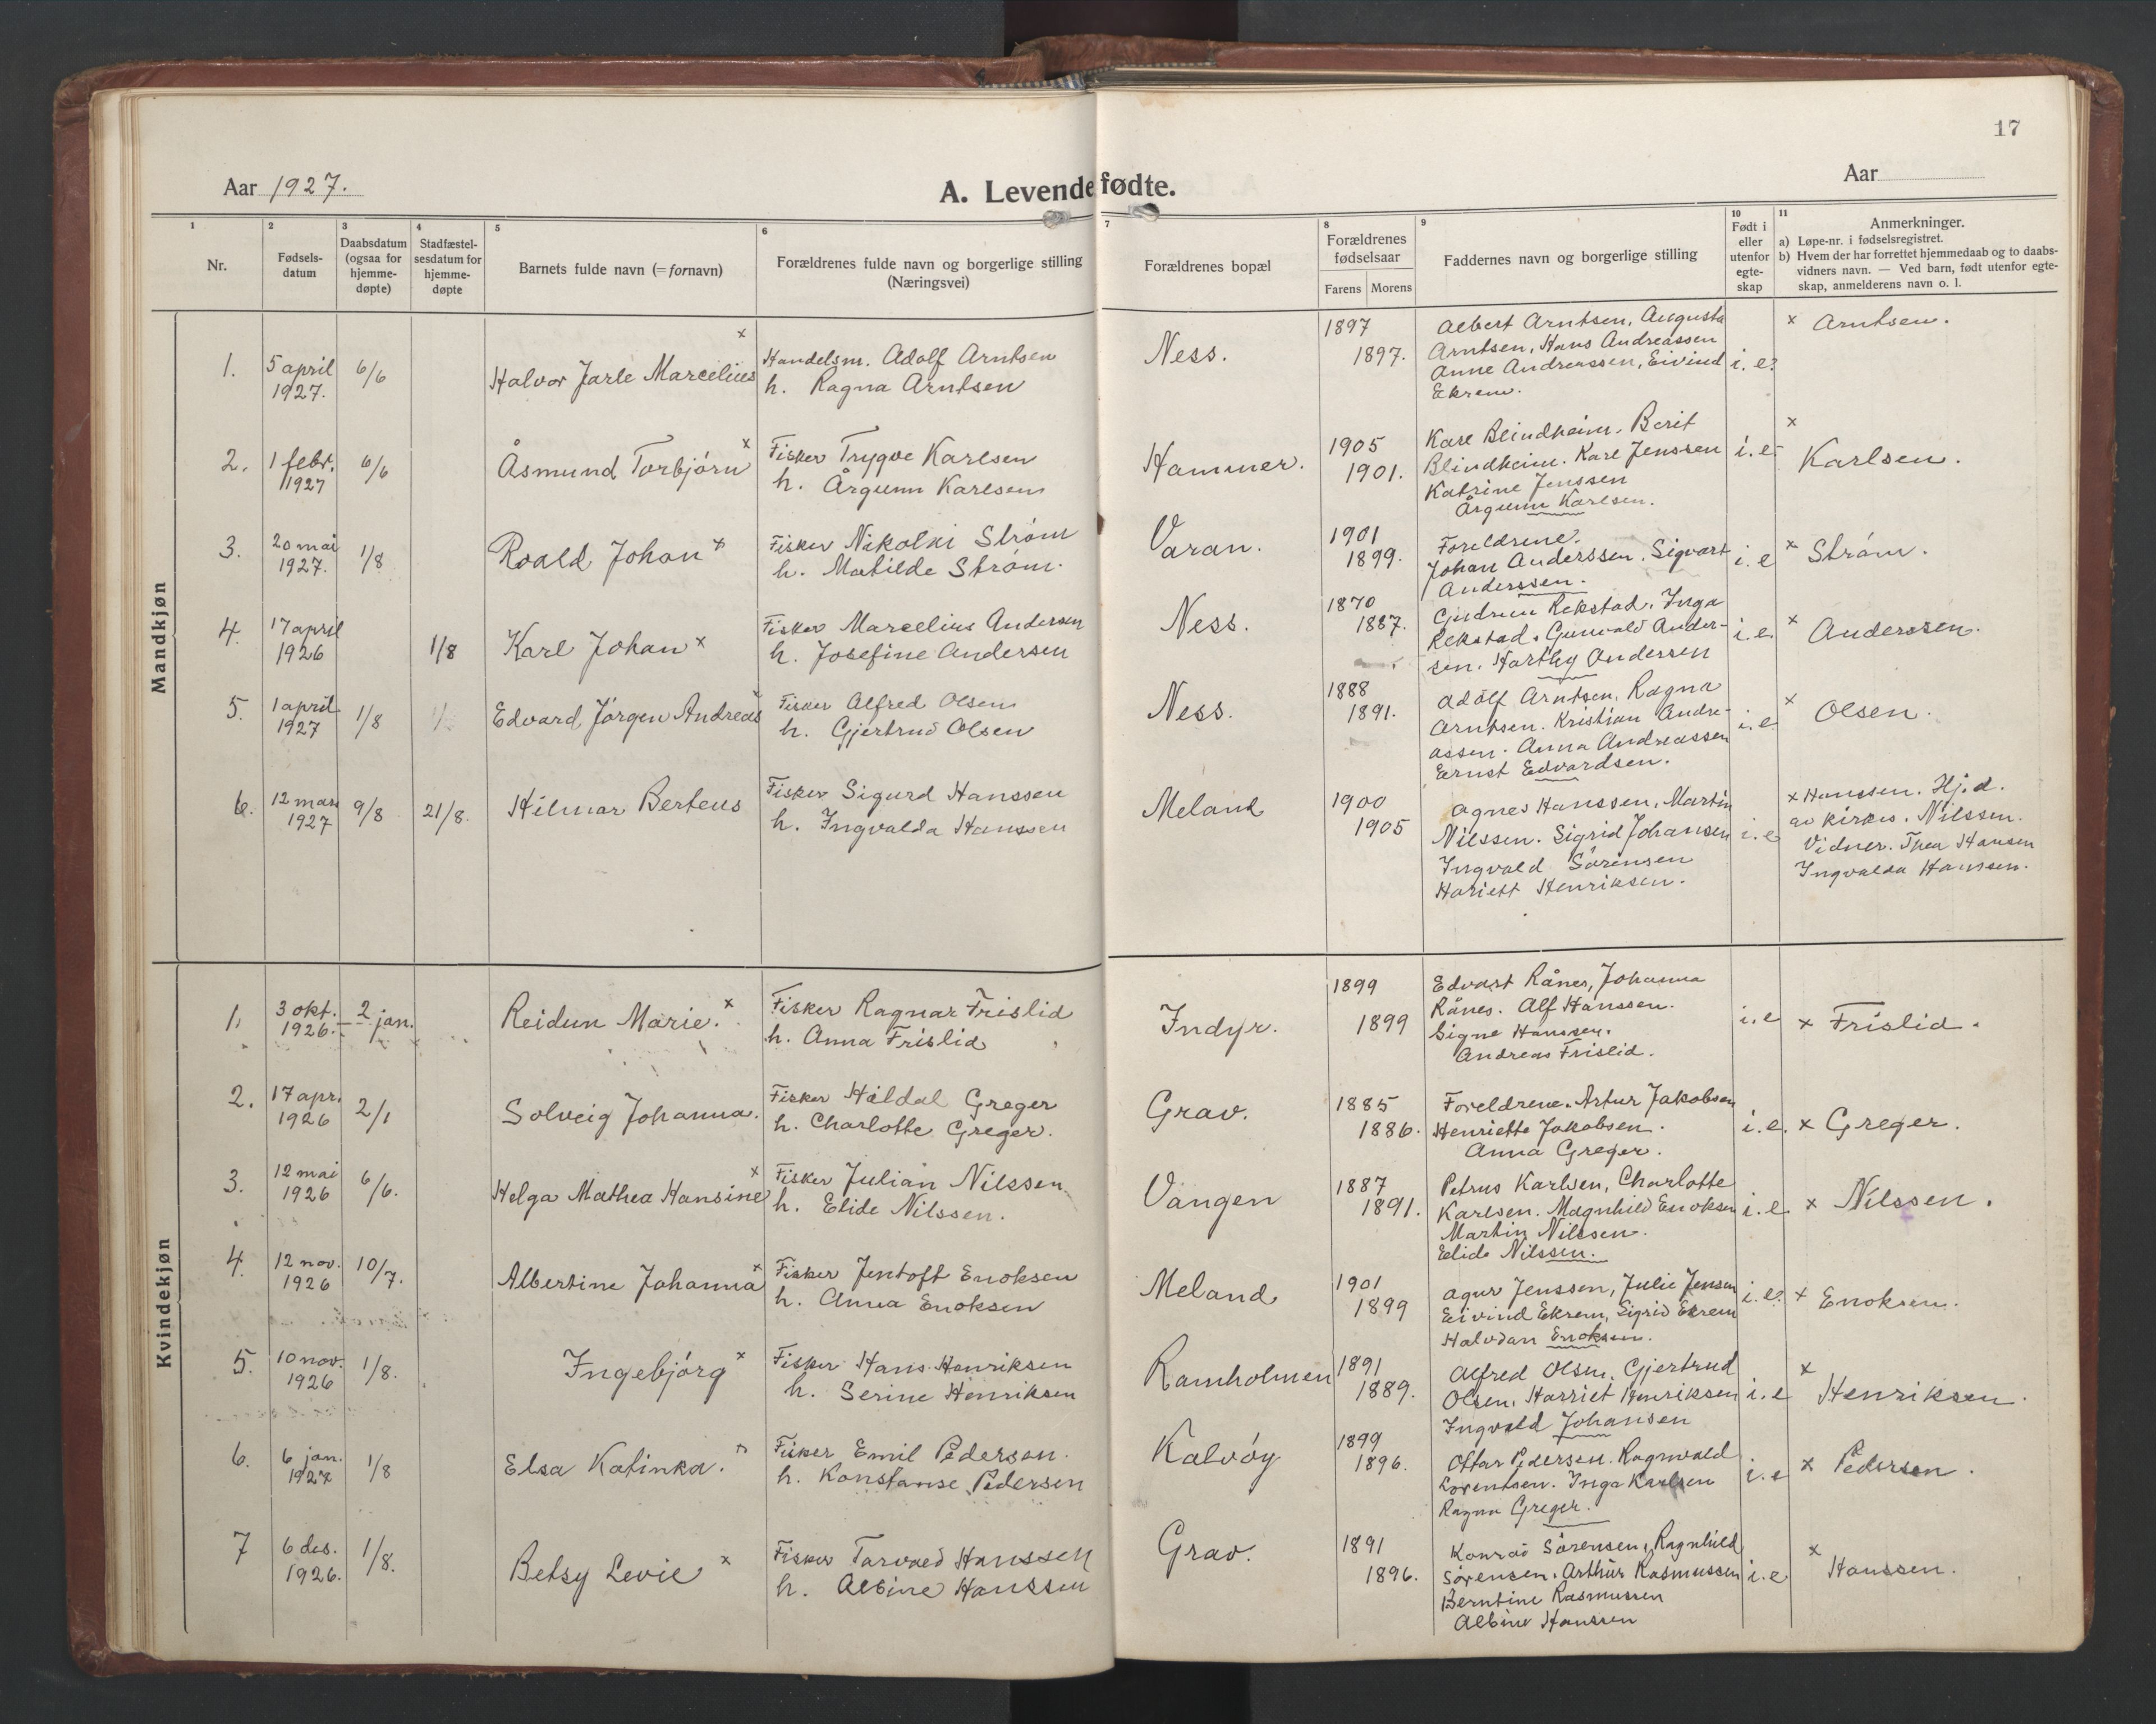 17
Aar 1927.
A. Levendefødte.
Aar
1
2
3
4
5
6
7
8
9
10
11
Nr.
Fødsels-
datum
Daabsdatum
(ogsaa for
hjemme-
døpte)
Stadfæstel-
sesdatum for
hjemme-
døpte
Barnets fulde navn (= fornavn)
Forældrenes fulde navn og borgerlige stilling
(Næringsvei)
Forældrenes bopæl
Forældrenes
fødselsaar
Farens Morens
Faddernes navn og borgerlige stilling
Født i
eller
utenfor
egte-
skap
Anmerkninger.
a) Løpe-nr. i fødselsregistret.
b) Hvem der har forrettet hjemmedaab og to daabs-
vidners navn. — Ved barn, født utenfor egte-
skap, anmelderens navn o. l.
Mandkjøn
1.
5 april
1927.
6/6
Halvor Jarle Marcelius x
Handelsm. Adolf Arntsen
h. Ragna Arntsen
Ness.
1897
1897.
Albert Arntsen, Augusta
Arntsen, Hans Andreassen
Anne Andreassen, Eivind
Ekrem.
i. e.
x Arntsen.
2.
1 febr.
1927
6/6
Åsmund Torbjörn x
Fisker Trygve Karlsen
h. Årgunn Karlsen
Hammer.
1905
1901.
Kare Blindheim. Berit
Blindheim. Karl Jenssen
Katrine Jenssen
Årgunn Karlsen.
i. e.
x
Karlsen.
3.
20 mai
1927.
1/8
Roald Johan x
Fisker Nikolai Ström
h. Matilde Ström.
Varan.
1901
1899.
Foreldrene.
Johan Anderssen. Sigvart
Anderssen.
i. e
x Ström.
4.
17 april
1926
1/8
Karl Johan x
Fisker Marcelius Andersen
h. Josefine Andersen
Ness.
1870
1887.
Gudrun Rekstad. Inga
Rekstad. Gunvald Ander-
sen. Harthy Andersen
i. e.
x Anderssen.
5.
1 april
1927
1/8
Edvard Jörgen Andreas x
Fisker Alfred Olsen
h. Gjertrud Olsen
Ness.
1888
1891.
Adolf Arntsen. Ragna
Arntsen. Kristian Andre-
assen. Anna Andreassen
Ernst Edvardsen.
i. e
x Olsen.
6.
12 mars
1927
9/8
21/8.
Hilmar Berteus
Fisker Sigurd Hanssen
h. Ingvalda Hanssen
Meland
1900
1905
Agnes Hanssen, Martin
Nilssen. Sigrid Johansen
Ingvald Sörensen
Hariett Henriksen.
i. e
x Hanssen. Hj.d.
av kirkes. Nilssen.
Vidner. Thea Hansen
Ingvalda Hanssen.
Kvindekjøn
1.
3 okt.
1926.
2 jan.
Reidun Marie. x
Fisker Ragnar Frislid
h. Anna Frislid
Indyr.
1899
1899
Edvart Rånes, Johanna
Rånes. Alf Hanssen.
Signe Hanssen.
Andreas Frislid.
i. e
x Frislid.
2.
17 apr.
1926
2/1
Solveig Johanna.
Fisker Haldal Greger
h. Charlotte Greger.
Grav.
1885
1886.
Foreldrene. Artur Jakobsen
Henriette Jakobsen.
Anna Greger.
i. e.
x Greger.
3.
12 mai
1926
6/6.
Helga Mathea Hansine x
Fisker Julian Nilssen
h. Elide Nilssen.
Vangen
1887
1891.
Petrus Karlsen, Charlotte
Karlsen. Magnhild Enoksen
Martin Nilssen.
Elide Nilssen.
i. e
x Nilssen.
4.
12 nov.
1926
10/7.
Albertine Johanna x
Fisker Jentoft Enoksen
h. Anna Enoksen
Meland
1901
1899
Agur Jenssen, Julie Jensen
Eivind Ekrem, Sigrid Ekrem
Halvdan Enoksen.
i. e.
x Enoksen.
5.
10 nov.
1926
1/8.
Ingebjörg x
Fisker Hans Henriksen
h. Serine Henriksen
Ramholmen
1891
1889.
Alfred Olsen. Gjertrud
Olsen, Harriet Henriksen
Ingvald Johansen
i. e
x
Henriksen.
6.
6 jan.
1927
1/8
Elsa Katinka. x
Fisker Emil Pedersen.
h. Konstanse Pedersen
Kalvöy
1899
1896.
Ottar Pedersen. Ragnvald
Lorentsen. Inga Karlsen
Ragna Greger.
i. e
x Pedersen.
7
6 des.
1926.
1/8.
Betsy Levie x
Fisker Torvald Hanssen
h. Albine Hanssen
Grav.
1891
1896.
Konrad Sörensen, Ragnhild
Sörensen. Arthur Rasmussen
Berntine Rasmussen
Albine Hanssen
i. e
x
Hanssen.